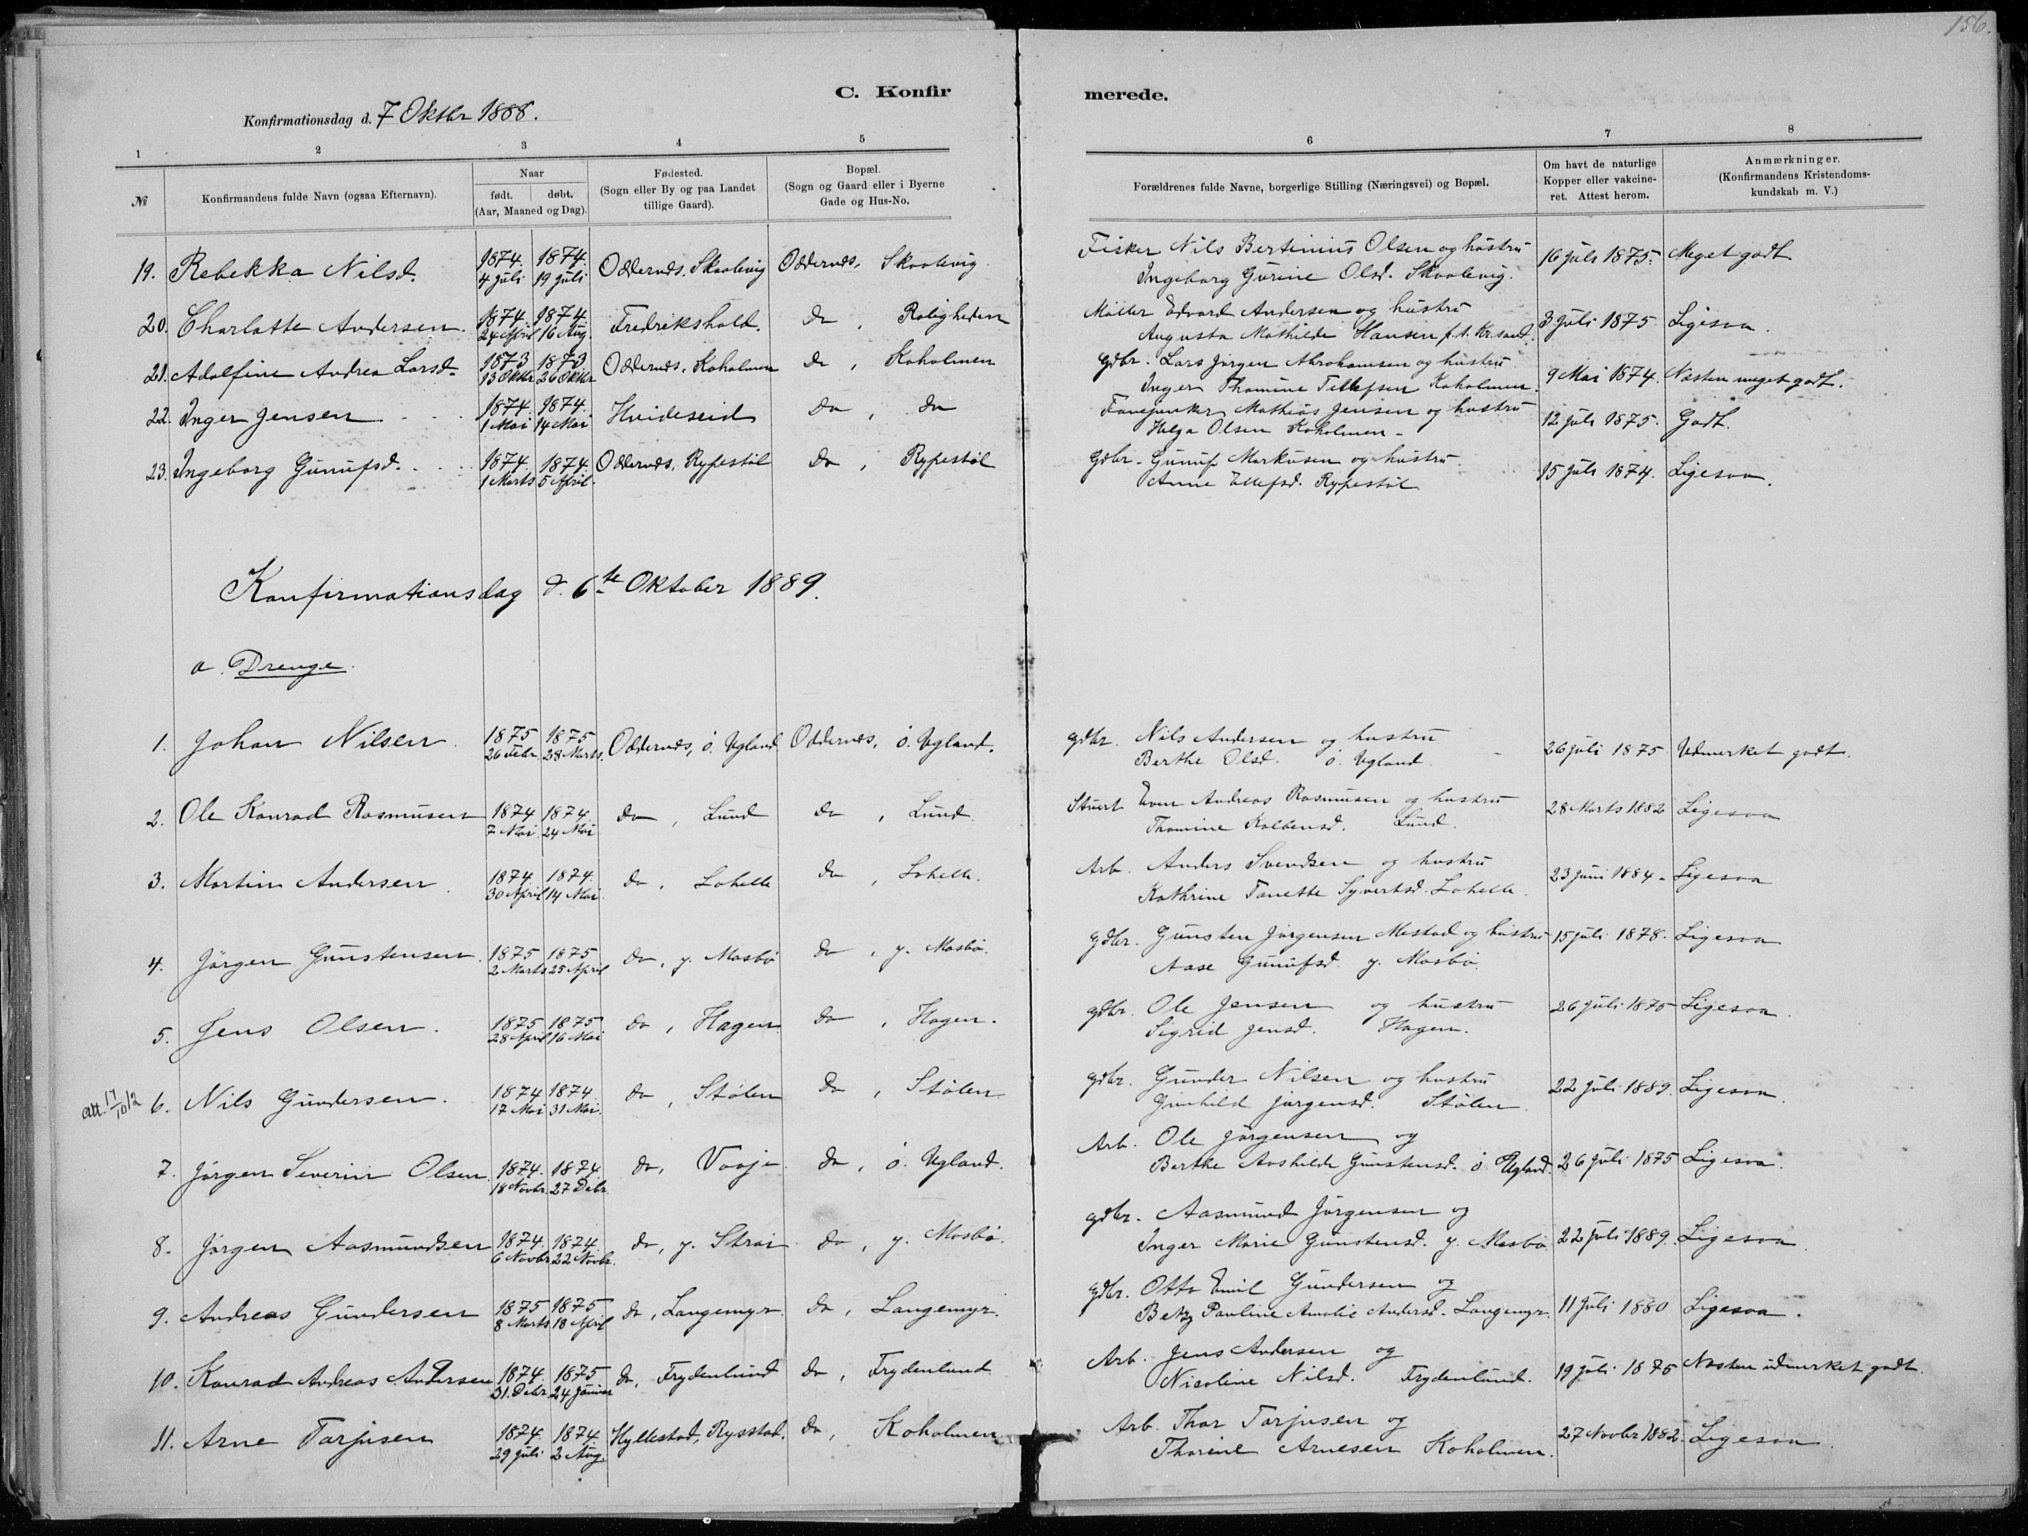 156.
C. Konfir merede.
Konfirmationsdag d. 7 Oktbr 1888.
1 2 3 4 5 6 7 8
№
Konfirmandens fulde Navn (ogsaa Efternavn).
Naar
født. døbt.
(Aar, Maaned og Dag).
Fødested.
(Sogn eller By og paa Landet
tillige Gaard).
Bopæl.
(Sogn og Gaard eller i Byerne
Gade og Hus-No.
Forældrenes fulde Navne, borgerlige Stilling (Næringsvei) og Bopæl.
Om havt de naturlige
Kopper eller vakcine-
ret. Attest herom.
Anmærkninger.
(Konfirmandens Kristendoms-
kundskab m. V.)
19. Rebekka Nilsd. 1874. 4 juli 1874. 19 juli Oddernæs, Skaalevig Oddernæs, Skaalevig Fisker Nils Bertinius Olsen og hustru
Ingeborg Gurine Olsd. Skaalevig. 16 juli 1875. Meget godt
20. Charlotte Andersen. 1874. 24 April 1874. 16 Aug. Fredrikshald. do, Roligheden Møller Edvard Andersen og hustru
Augusta Mathilde Hansen f. t. Kr.sand. 3 juli 1875 Ligesaa.
21. Adolfine Andrea Larsd. 1873 13 Oktbr 1873 26 Oktbr Oddernæs, Koholmen do, Koholmen gdbr. Lars Jørgen Abrahamsen og hustru
Inger Thomine Tellefsen Koholmen. 9 Mai 1874. Næsten meget godt.
22. Inger Jensen 1874. 1 Mai 1874. 14 Mai Hvideseid do, do Fanejunker Mathias Jensen og hustru
Helga Olsen Koholmen 12 juli 1875. Godt.
23. Ingeborg Gunufsd. 1874. 1 Marts 1874. 5 April. Oddernæs, Rypestøl do, Rypestøl gdbr. Gunuf Markusen og hustru
Anne Ellefsd. Rypestøl 15 juli 1874. Ligesaa.
Konfirmationsdag d. 6te Oktober 1889.
a. Drenge.
1. Johan Nilsen. 1875 26 Febr. 1875 28 Marts. Oddernæs, ö. Vgland Oddernæs, ö. Vgland. gdbr. Nils Andersen og hustru
Berthe Olsd. ö. Vgland. 26 juli 1875 Udmerket godt.
2. Ole Konrad Rasmusen 1874 7 Mai 1874. 24 Mai do, Lund do, Lund. Stuert Even Andreas Rasmusen og hustru
Thomine Kolbensd. Lund. 28 Marts 1882 Ligesaa
3. Martin Andersen. 1874. 30 April 1874. 14 Mai do, Lohelle do, Lohelle. Arb. Anders Svendsen og hustru
Kathrine Tanette Syvertsd. Lohelle. 23 juni 1884 Ligesaa
4. Jørgen Gunstensen. 1875 2 Marts 1875 25 April do, y. Mosbø do, y. Mosbø. gdbr. Gunsten Jørgensen Mestad og hustru
Aase Gunufsd. y. Mosbø. 15 juli 1878. Ligesaa
5. Jens Olsen. 1875 28 April 1875 16 Mai do, Hagen do, Hagen. gdbr. Ole Jensen og hustru
Sigrid Jensd. Hagen. 26 juli 1875 Ligesaa.
att. 17/10 12 6. Nils Gundersen. 1874 17 Mai 1874 31 Mai. do, Stølen do, Stølen gdbr. Gunder Nilsen og hustru
Gunhild Jørgensd. Stølen. 22 juli 1889. Ligesaa.
7. Jørgen Severin Olsen 1874. 18 Novbr. 1874. 27 Debr. do, Vaaje do, ö. Vgland. Arb. Ole Jørgensen og
Berthe Aashilde Gunstensd. ö. Vgland. 26 juli 1875 Ligesaa.
8. Jørgen Aasmundsen 1874. 6 Novbr 1874 22 Novbr. do, y. Strai do, y. Mosbø. gdbr. Aasmund Jørgensen og
Inger Marie Gunstensd. y. Mosbø 22 juli 1889. Ligesaa.
9. Andreas Gundersen 1875 8 Marts 1875 18 April do, Langemyr. do, Langemyr. gdbr. Otto Emil Gundersen og
Betzy Pauline Amalie Andersd. Langemyr. 11 juli 1880 Ligesaa.
10. Konrad Andreas Andersen 1874 31. Debr. 1875 24 Januar do, Frydenlund do, Frydenlund Arb. Jens Andersen og
Nicoline Nilsd. Frydenlund. 19 juli 1875 Næsten udmerket godt.
11. Arne Tarjusen 1874. 29 juli 1874 2 Aug. Hyllestad, Rysstad. do, Koholmen Arb. Thor Tarjusen og
Thorine Arnesen Koholmen. 27 Novbr 1882. Ligesaa.